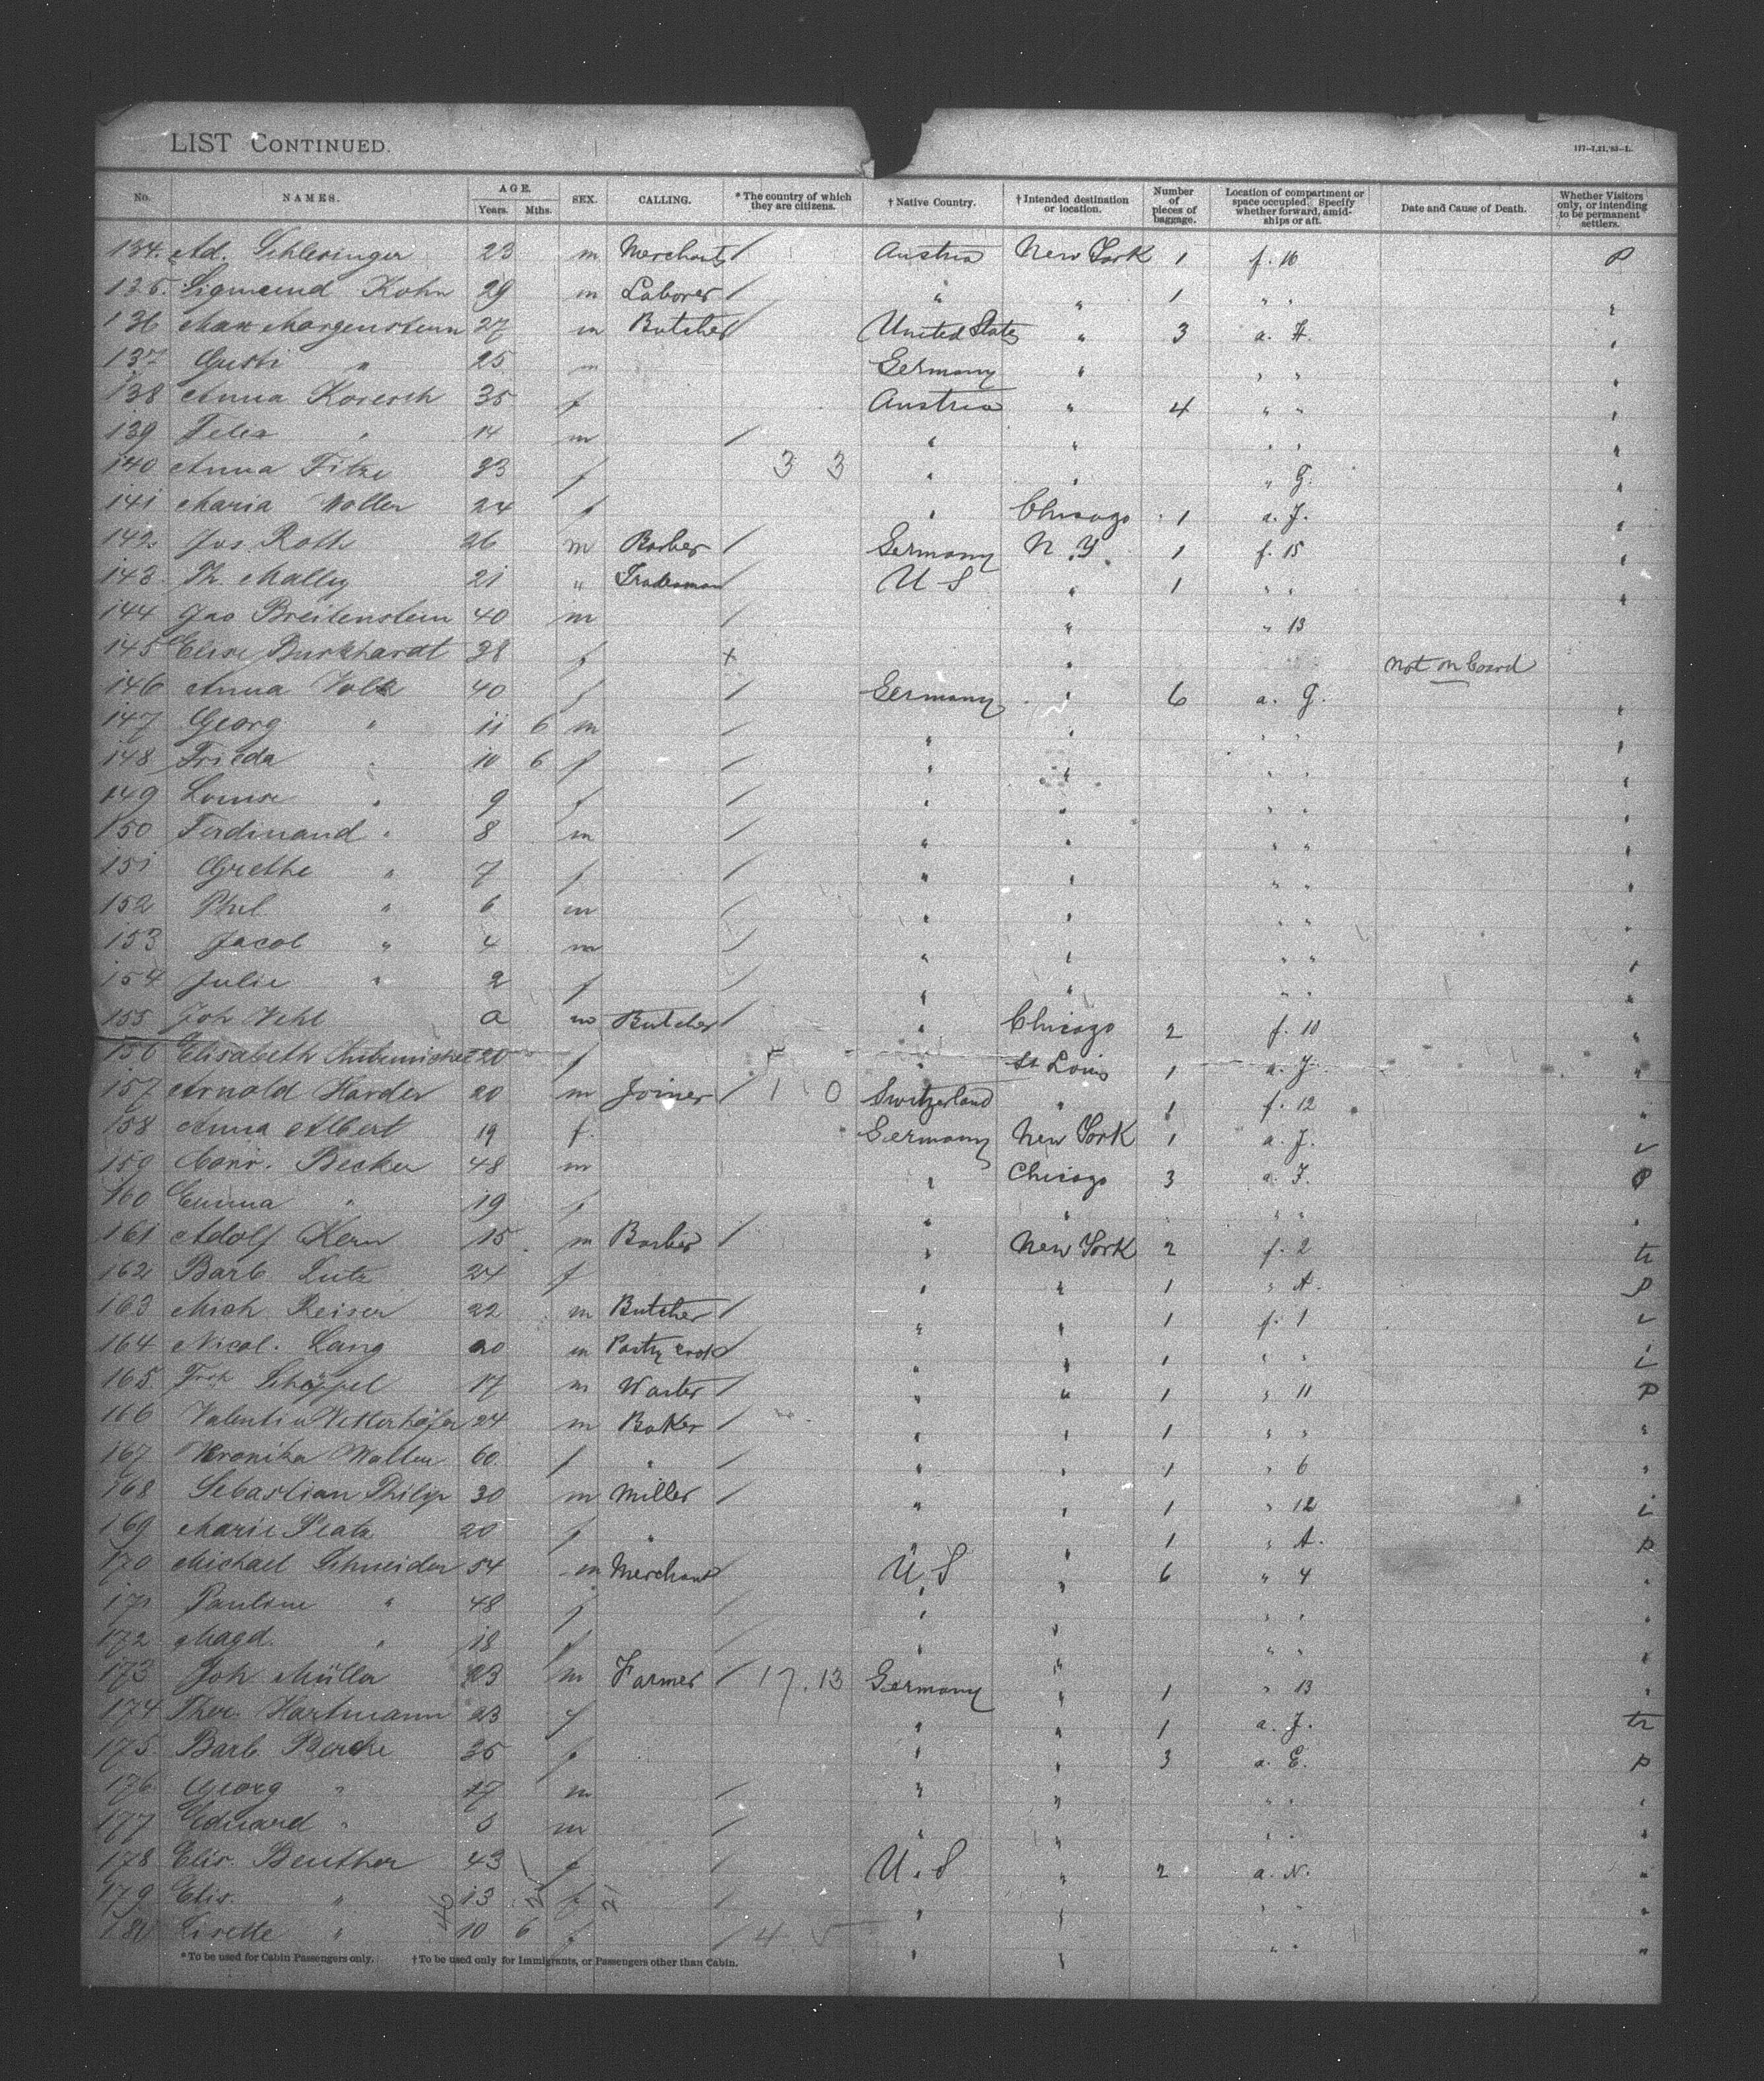 LIST CONTINUED.
117-1,21,'93-L.
No. NAMES. AGE. Years. Mths. SEX. CALLING. * The country of which they are citizens. † Native Country. † Intended destination or location. Number of pieces of baggage. Location of compartment or space occupied. Specify whether forward, amidships or aft. Date and Cause of Death. Whether Visitors only, or intending to be permanent settlers.
134. Ad. Schlesinger 23 m Merchant / Austria New York 1 f. 10 P
135. Sigmund Kohn 29 m Laborer / " " 1 " " "
136 Max Morgenstern 27 m Butcher / United States " 3 a. H. "
137 Gusti " 25 m Germany " " " "
138 Anna Koresch 35 f Austria " 4 " " "
139 Felix " 14 m / " " " " "
140 Anna Fitze 23 f 3 3 " " " G. "
141 Maria Woller 24 f " Chicago 1 a. J. "
142. Jos. Roth 26 m Barber / Germany N.Y. 1 f. 15 "
143 Th. Malley 21 " Tradesman / U S " 1 " " "
144 Jao Breitenstein 40 m / " " 13
145 Elise Burkhardt 38 f + " not on board
146 Anna Volk 40 f / Germany " 6 a. G. "
147 Georg " 11 6 m / " " " " "
148 Frieda " 10 6 f / " " " " "
149 Louise " 9 f / " " " " "
150 Ferdinand " 8 m / " " " " "
151 Grethe " 7 f / " " " " "
152 Phil " 6 m / " " " " "
153 Jacob " 4 m / " " " " "
154 Julie " 2 f / " " " " "
155 Joh Vehl m Butcher / " Chicago 2 f. 10 "
156 Elisabeth 20 f " St Louis 1 a. J. "
157 Arnold Harder 20 m Joiner / 1 0 Switzerland " 1 f. 12 "
158 Anna Albert 19 f. Germany New York 1 a. J.
159 Conr. Becker 48 m " Chicago 3 a. F. P
160 Emma " 19 f " " " " "
161 Adolf Kern 15 m Barber / " New York 2 f. 2 tr
162 Barb. Lutz 24 f " " 1 " A. P
163 Mich Reiser 22 m Butcher / " " 1 f. 1
164 Nicol. Lang 20 m Pastry cook / " " 1 " "
165. Frdr Schöppel 17 m Waiter / " " 1 " 11 P
166 Valentin Vetterhöfer 24 m Baker / " " 1 " " "
167 Veronika Walter 60 f " / " " 1 " 6 "
168 Sebastian Philip 30 m Miller / " " 1 " 12
169 Marie Platz 20 f " " " 1 " A. P
170 Michael Schneider 54 m Merchant / U.S " 6 " 4 "
171 Pauline " 48 f / " " " " "
172 Magd. " 18 f / " " " " "
173 Joh. Müller 23 m Farmer / 17.13 Germany " 1 " 13 "
174 Ther. Hartmann 23 f " " 1 a. J. tr
175 Barb Berche 35 f " " 3 a. E. P
176 Georg " 17 m / " " " " "
177 Eduard " m / " " " " "
178 Elis. Beuther 43 f / U.S " 2 a. N. "
179 Elis. " 13 f / " " " " "
180 Lisette " 10 6 f / 4 5 " " " " "
46
* To be used for Cabin Passengers only. † To be used only for Immigrants, or Passengers other than Cabin.